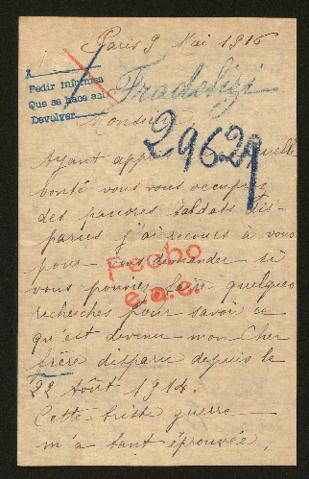 Paris 9 Mai 1916
A
Pedir informes
Que se hace así
Devolver
Fradelizi
Monsieur
29629
Ayant appris quelle
bonté vous vous occupez
des pauvres soldats dis-
parus j'ai recours à vous
pour vous demander si
vous pouviez faire quelques
recherches pour savoir ce
qu'est devenu mon Cher
frère disparu depuis le
22 Août 1914.
Fecho
e.a.e.
Cette triste guerre
m'a tant éprouvée,